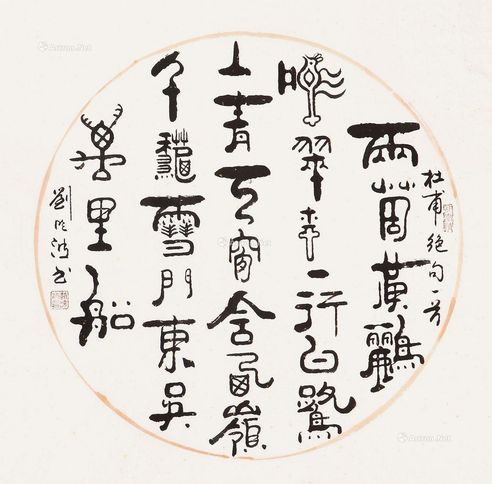 杜甫絕句一首
兩箇黃鸝
鳴翠一行白鷺
上青天窗含西嶺
千龝雪門東吳
萬里船
劉书
Artron.Net
Artron.Net
Artron.Net
Artron.Net